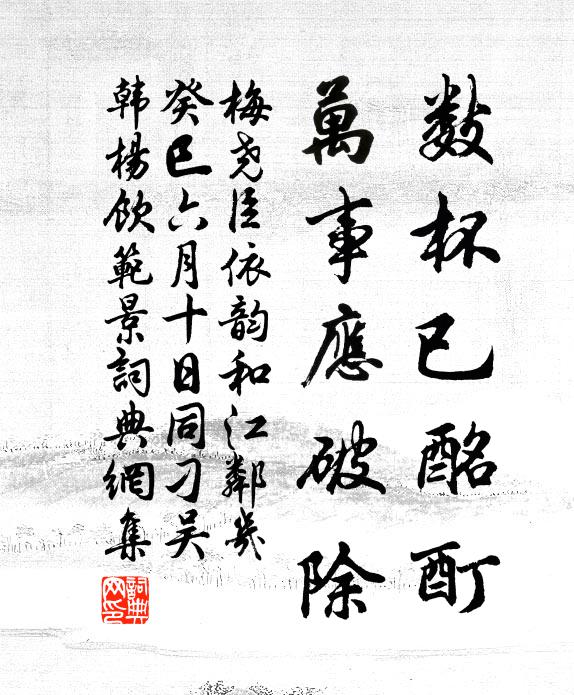 数杯已酩酊
萬事應破除
梅尧臣依韵和江鄰幾
癸巳六月十日同刁吴
韩楊飲範景詞典網集
詞典网印